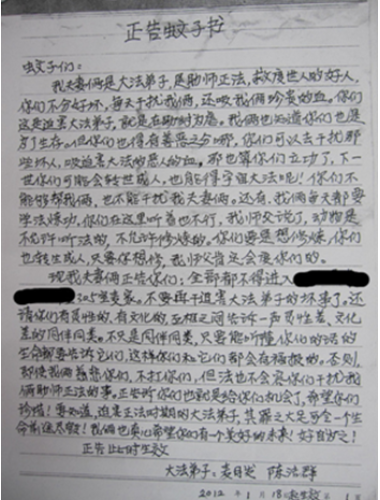 正告蚊子书
蚊子们:
我夫妻俩是大法弟子,是助师正法,救度世人的好人,
你们不分好坏,每天干扰我俩,还吸我俩珍贵的血。你们
这是迫害大法弟子,就是在助时为虐。我俩也知道你们也是
为了生存。但你们也得有善恶之分哪,你们可以去干扰那
些坏人,吸迫害大法的恶人的血。那也算你们立功了,下一
世你们可能会转世成人,也能得宇宙大法呢!你们不
能够帮我俩,也不能干扰我夫妻俩。还有,我俩每天都要
学法炼功,你们在这里听着也不行,我师父说了,动物是
不允许听法的,不允许修炼的。你们要是想修炼,你们
也转生成人,只要你想修,我师父肯定会度你们的。
现我夫妻俩正告你们:全部都不得进入
325室我家,不要再干迫害大法弟子的坏事了。还
请你们有灵性的,有文化的,互相之间告诉一声灵性差、文化
差的同伴同类。不只是同伴同类,只要能听懂你们的话的
生命都要告诉它们,这样你们和它们都会有福报的。否则,
即使我俩慈悲你们,不打你们,但法也不会容你们干扰我
俩助师正法的事。正告所你们也就是给你们机会了,希望你们
珍惜!要知道,迫害正法时期的大法弟子,其罪之大足可令一个生
命
我俩也衷心希望你们有个美好的未来!好自为之!
正告此时生效
大法弟子: 陈浩群
2012年1月18日